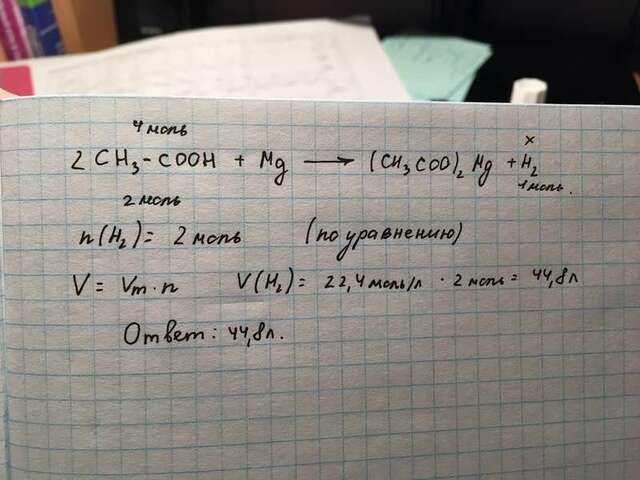 4 моль x
2 CH₃-COOH + Mg ⟶ (CH₃COO)₂Mg + H₂
2 моль 1 моль.
n(H₂) = 2 моль (по уравнению)
V = Vm·n V(H₂) = 22,4 моль/л · 2 моль = 44,8л
Ответ: 44,8л.